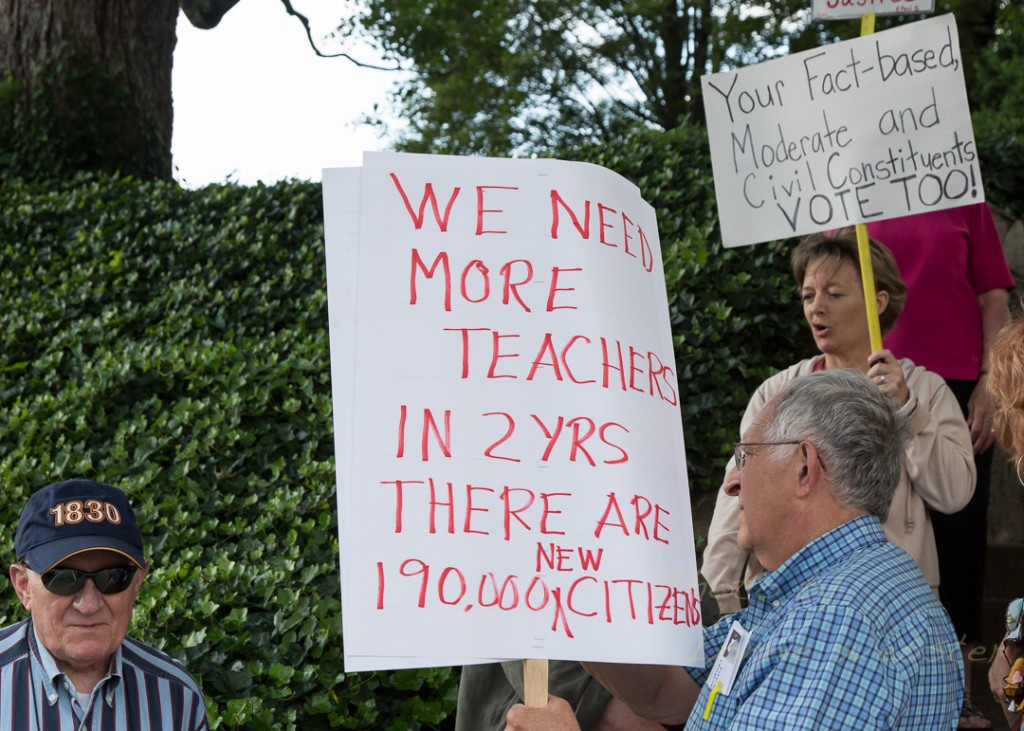 Your Fact-based,
Moderate and
Civil Constituents
VOTE TOO!
WE NEED
MORE
TEACHERS
IN 2 YRS
THERE ARE
NEW
190,000 CITIZENS
1830